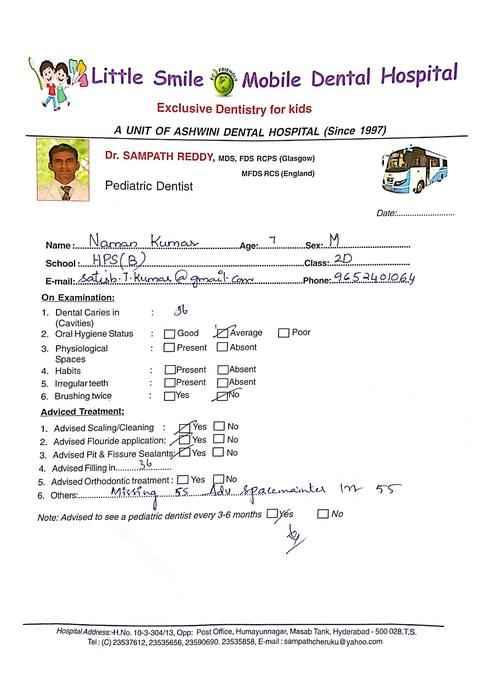 Little Smile ECO FRIENDLY Mobile Dental Hospital
Exclusive Dentistry for kids
A UNIT OF ASHWINI DENTAL HOSPITAL (Since 1997)
Dr. SAMPATH REDDY, MDS, FDS RCPS (Glasgow)
MFDS RCS (England)
Pediatric Dentist
Date:
Name: Naman Kumar Age: 7 Sex: M
School: HPS(B) Class: 2D
E-mail: satish.J.Kumar@gmail.com Phone: 9652401064
On Examination:
1. Dental Caries in : 36
(Cavities)
2. Oral Hygiene Status : Good Average Poor
3. Physiological : Present Absent
Spaces
4. Habits : Present Absent
5. Irregular teeth : Present Absent
6. Brushing twice : Yes No
Adviced Treatment:
1. Advised Scaling/Cleaning : Yes No
2. Advised Flouride application: Yes No
3. Advised Pit & Fissure Sealants: Yes No
4. Advised Filling in 36
5. Advised Orthodontic treatment : Yes No
6. Others: Missing 55 Adv spacemainter in 55
Note: Advised to see a pediatric dentist every 3-6 months Yes No
Hospital Address:-H.No. 10-3-304/13, Opp: Post Office, Humayunnagar, Masab Tank, Hyderabad - 500 028,T.S.
Tel : (C) 23537612, 23535656, 23590690. 23535858, E-mail : sampathcheruku@yahoo.com